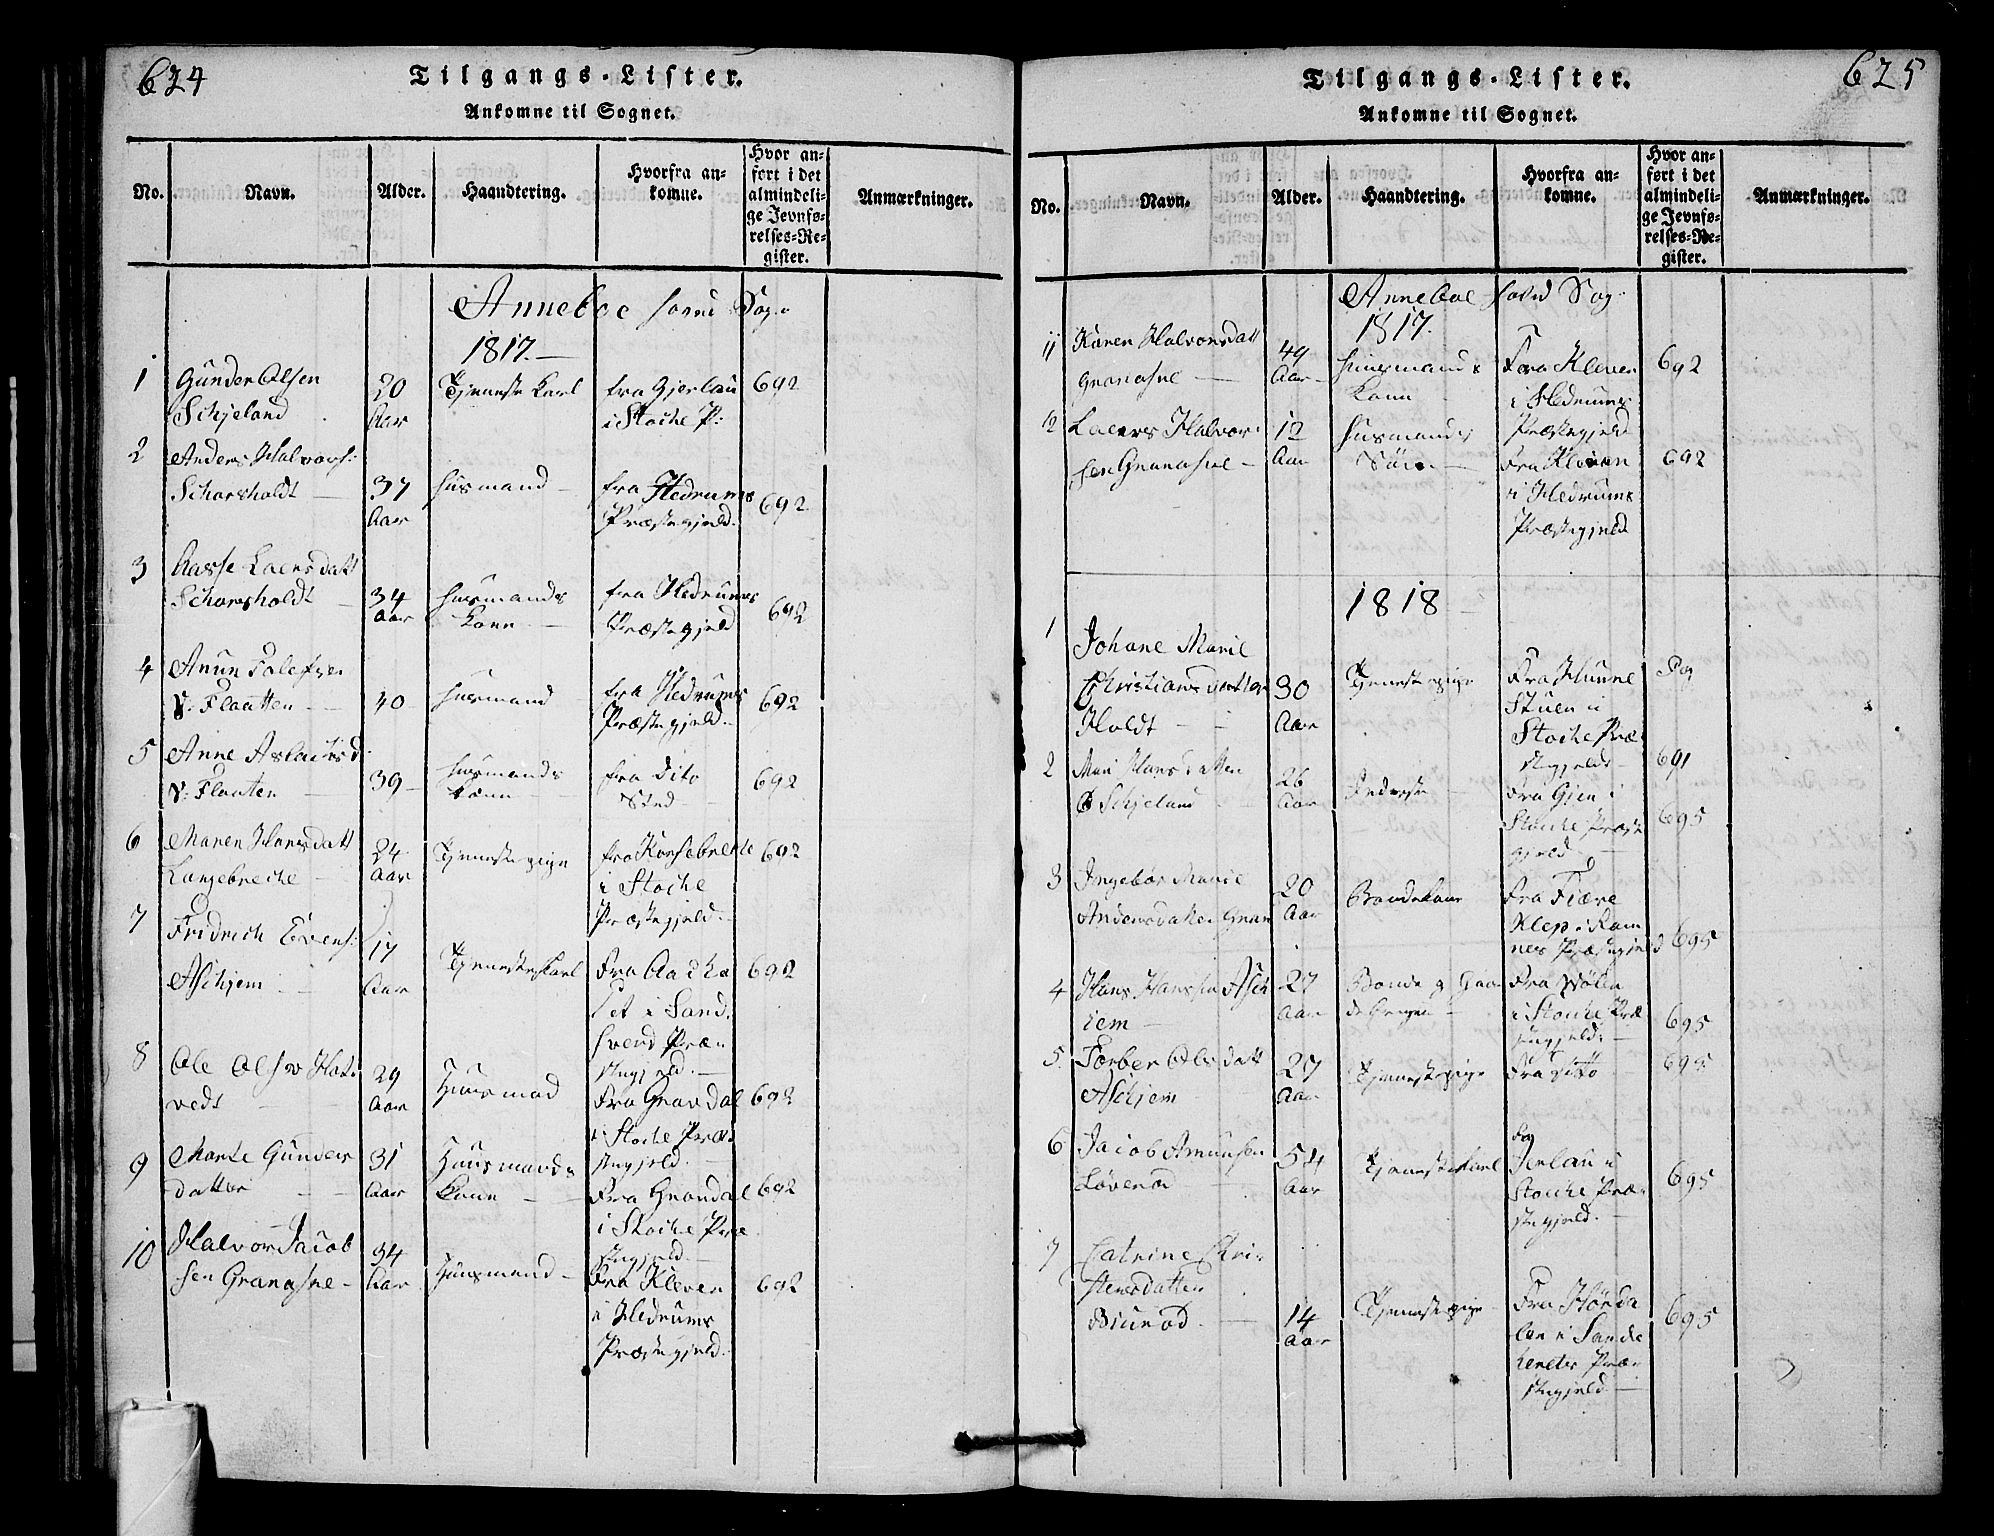 624
Tilgangs-Lister.
Ankomne til Sognet.
No.
Navn.
Alder.
Haandtering.
Hvorfra an-
komne.
Hvor an-
ført i det
almindeli-
ge Jevnfø-
relses-Re-
gister.
Anmærkninger.
Anneboe Sogn
1817.
1
Gunder Olsen
Schjeland
20
Aar
Tjeneste Karl
fra Gjerlau
i Stocke P:
692
2
Anders Halvors:
Schorsholdt
37
Aar
Husmand
fra Hedrums
Præstegjeld.
692
3
Aasse Laersdatt
Schorsholdt
34
Aar
Husmands
Kone
fra Hedrums
Præstegjeld
692
4
Anun
V: Flaatten
40
Husmand
fra Hedrums
Præstegjeld
692
5
Anne Aslachsd.
V: Flaaten
39
Husmands
Kone
fra dito
Sted
692
6
Maren Hansdatt
Langebreche
24
Aar
Tjenestepige
fra
i Stocke
Præstegjeld.
692
7
Fridrich Evens:
Aschjem
17
Aar
Tjenestekarl
Fra
i Sand
Præ
stegjeld.
692
8
Ole Olsen
veds
29
Aar
Huusmad
Fra Gravdal
i Stocke Præ
stegjeld.
692
9
Marte Gunders
datter
31
Aar
Huusmands
Kone
Fra Gravdal
i Stocke Præ
stegjeld.
692
10
Halvor Jacob
sen Granasne
34
Aar
Huusmand
Fra Kleven
i Hedrums
Præstegjeld.
692
625
Tilgangs-Lister.
Ankomne til Sognet.
No.
Navn.
Alder.
Haandtering.
Hvorfra an-
komne.
Hvor an-
ført i det
almindeli-
ge Jevnfø-
relses-Re-
gister.
Anmærkninger.
Anneboe Sog
1817.
11
Karen Halvorsdatt
Granasne
49
Aar
Huusmands
Kone
Fra Kleven
i Hedrums
Præstegjeld
692
12
Laers Halvor
sen Granasne
12
Aar
Husmands
Søn
Fra Kleven
i Hedrums
Præstegjeld
692
1818
1
Johane Marie
Christiansdatter
Holdt
30
Aar
Tjenestepige
Fra
Stuen i
Stocke Præ
stegjeld
Pag
691
2
Mari Hansdatter
Schjeland
26
Aar
Fra Gjen i
Stocke Præste
gjeld
695
3
Ingebor Marie
Andersdatter
20
Aar
Bondekone
Fra Fiære
Klep i Ram
nes Præstegjeld
695
4
Hans Hansen Asch
iem
27
Aar
Bonde og Gaar
Fra
i Stocke Præ
stegjeld.
695
5
Torber Olsdatt
Aschjem
27
Aar
Tjenestepige
Fra dito
695
6
Jacob Amunsen
Løverød
54
Aar
Tjenestekarl
Fra
Jerlau i
Stocke Præ
stegjeld.
695
7
Catrine Chri
stensdatter
Biurød
14
Aar
Tjenestepige
Fra Hønda
len i Sande
herets Præ
stegjeld
695